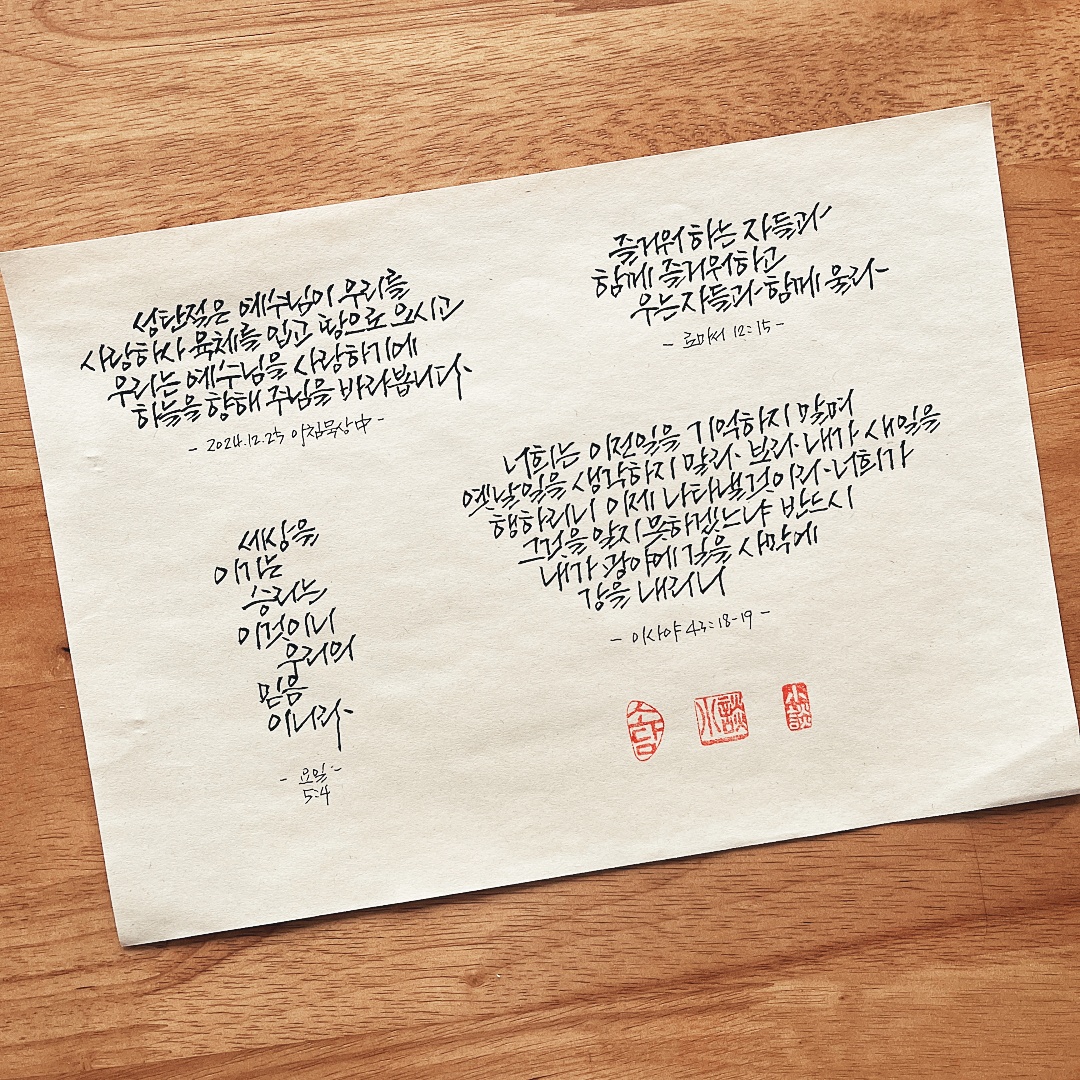 성탄절은 예수님이 우리를
사랑하사 육체를 입고 땅으로 오시고
우리는 예수님을 사랑하기에
하늘을 향해 주님을 바라봅니다.
- 2024.12.25 아침묵상中 -
세상을
이기는
승리는
이것이니
우리의
믿음
이니라
- 요일 -
5:4
즐거워하는 자들과
함께 즐거워하고
우는 자들과 함께 울라
- 로마서 12:15 -
너희는 이전일을 기억하지 말며
옛날일을 생각하지 말라. 보라 내가 새일을
행하리니 이제 나타낼것이라 너희가
그것을 알지 못하겠느냐 반드시
내가 광야에 길을 사막에
강을 내리니
- 이사야 43:18-19 -
소담 小談 小談